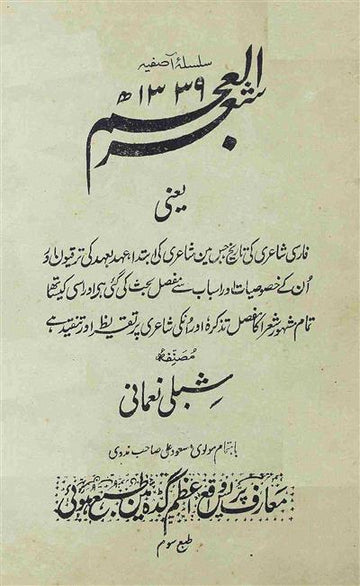 سلسلۂ آصفیہ
شعر العجم
۱۳۳۹ھ
یعنی
فارسی شاعری کی تاریخ جس مین شاعری کی ابتدا عہد بعہد کی ترقیون اور
اُن کے خصوصیات اور اسباب سے مفصل بحث کی گئی ہی اور اسی کیساتھ
تمام مشہور شعرا کا مفصل تذکرہ اور اُنکی شاعری پر تقریظ اور تنقید ہے
مصنفہ
شبلی نعمانی
باہتمام مولوی مسعود علی صاحب ندوی
معارف پریس واقع اعظم گڈہ مین طبع ہوئی
طبع سوم